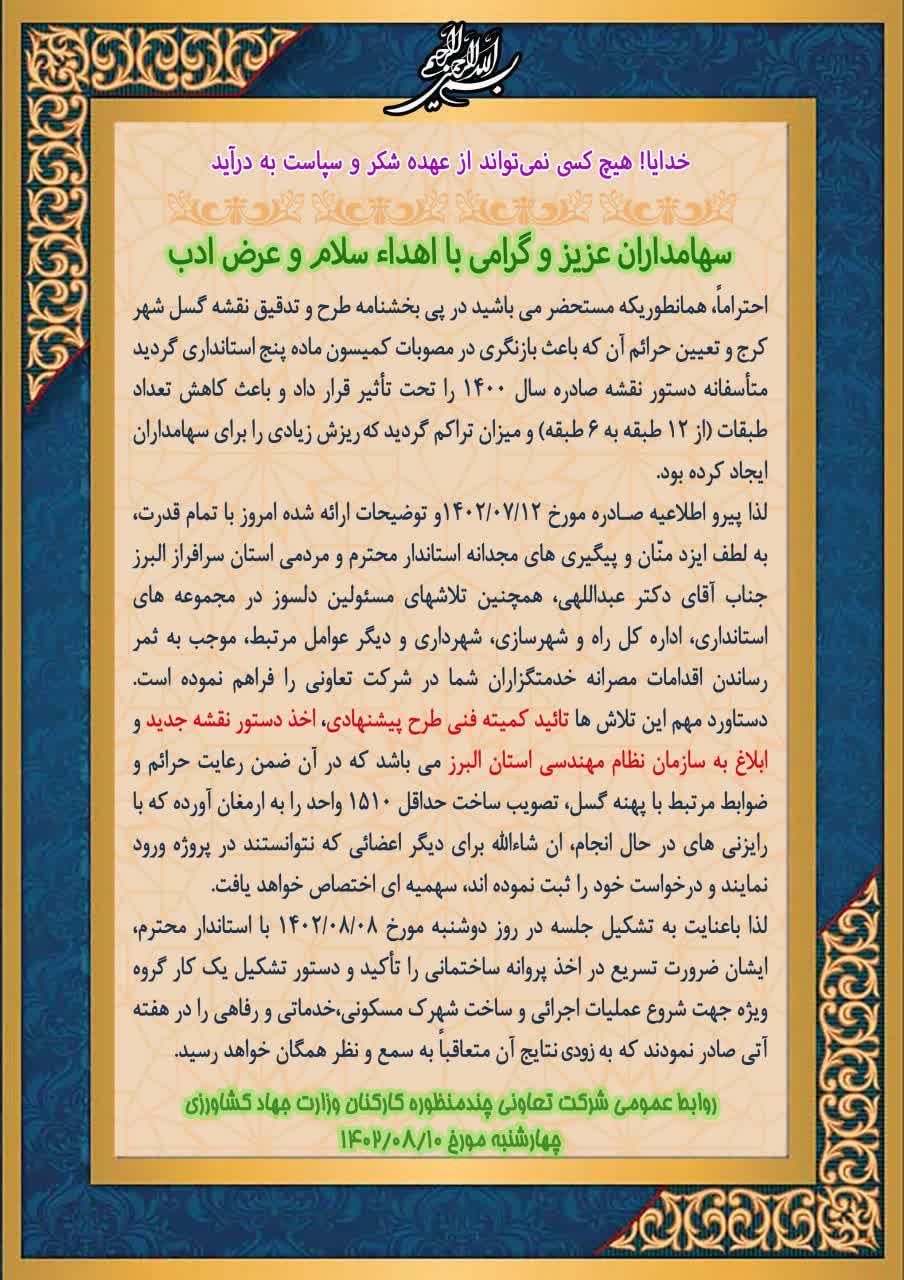 بسم الله الرحمن الرحیم
خدایا! هیچ کسی نمی‌تواند از عهده شکر و سپاست به درآید
سهامداران عزیز و گرامی با اهداء سلام و عرض ادب
احتراماً، همانطوریکه مستحضر می باشید در پی بخشنامه طرح و تدقیق نقشه گسل شهر
کرج و تعیین حرائم آن که باعث بازنگری در مصوبات کمیسون ماده پنج استانداری گردید
متأسفانه دستور نقشه صادره سال ۱۴۰۰ را تحت تأثیر قرار داد و باعث کاهش تعداد
طبقات (از ۱۲ طبقه به ۶ طبقه) و میزان تراکم گردید که ریزش زیادی را برای سهامداران
ایجاد کرده بود.
لذا پیرو اطلاعیه صـادره مورخ ۱۴۰۲/۰۷/۱۲و توضیحات ارائه شده امروز با تمام قدرت،
به لطف ایزد منّان و پیگیری های مجدانه استاندار محترم و مردمی استان سرافراز البرز
جناب آقای دکتر عبداللهی، همچنین تلاشهای مسئولین دلسوز در مجموعه های
استانداری، اداره کل راه و شهرسازی، شهرداری و دیگر عوامل مرتبط، موجب به ثمر
رساندن اقدامات مصرانه خدمتگزاران شما در شرکت تعاونی را فراهم نموده است.
دستاورد مهم این تلاش ها تائید کمیته فنی طرح پیشنهادی، اخذ دستور نقشه جدید و
ابلاغ به سازمان نظام مهندسی استان البرز می باشد که در آن ضمن رعایت حرائم و
ضوابط مرتبط با پهنه گسل، تصویب ساخت حداقل ۱۵۱۰ واحد را به ارمغان آورده که با
رایزنی های در حال انجام، ان شاءالله برای دیگر اعضائی که نتوانستند در پروژه ورود
نمایند و درخواست خود را ثبت نموده اند، سهمیه ای اختصاص خواهد یافت.
لذا باعنایت به تشکیل جلسه در روز دوشنبه مورخ ۱۴۰۲/۰۸/۰۸ با استاندار محترم،
ایشان ضرورت تسریع در اخذ پروانه ساختمانی را تأکید و دستور تشکیل یک کار گروه
ویژه جهت شروع عملیات اجرائی و ساخت شهرک مسکونی،خدماتی و رفاهی را در هفته
آتی صادر نمودند که به زودی نتایج آن متعاقباً به سمع و نظر همگان خواهد رسید.
روابط عمومی شرکت تعاونی چندمنظوره کارکنان وزارت جهاد کشاورزی
چهارشنبه مورخ ۱۴۰۲/۰۸/۱۰